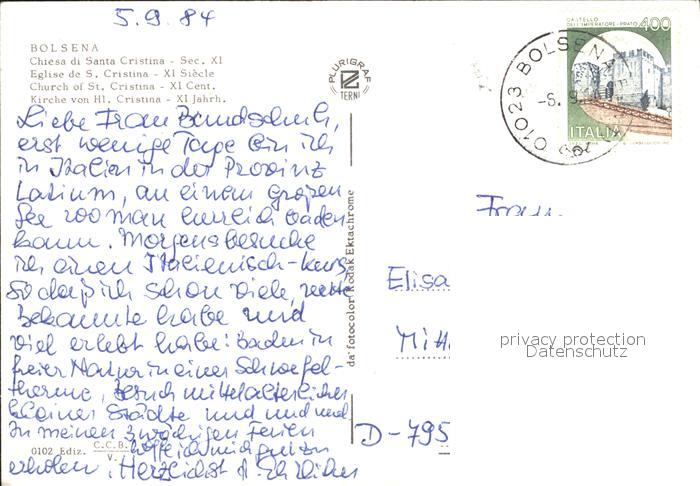 5.9.84
BOLSENA
Chiesa di Santa Cristina - Sec. XI
Eglise de S. Cristina - XI Siècle
Church of St. Cristina - XI Cent.
Kirche von Hl. Cristina - XI Jahrh.
PLURIGRAF
TERNI
Liebe Frau Bundschuh,
erst wenige Tage bin ich
in Italien in der Provinz
Latium, an einem großen
See wo man herrlich baden
kann. Morgens besuche
ich einen Italienisch-Kurs,
so daß ich schon viele, nette
Bekannte habe und
viel erlebt habe: Baden in
freier Natur in einer Schwefel-
therme, Besuch mittelalterlicher
kleiner Städte und und und
In meinen Ferien
hoffe ich mich gut zu
erholen. Herzlichst
0102 Ediz. C.C.B.
V.
da fotocolor Kodak Ektachrome
CASTELLO
DELL'IMPERATORE - PRATO 400
ITALIA
01023 BOLSENA
Frau
Elisa
Mitt
D-795
privacy protection
Datenschutz